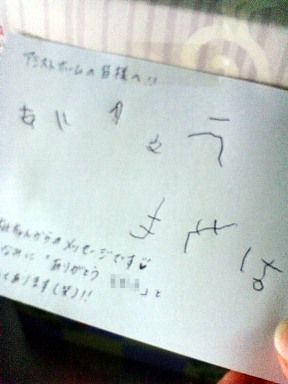 アシストホームの皆様へ!!
あ り が と う
ま せ は
ちゃんからのメッセージです♡
なみに「ありがとう 」と
てあります(笑)!!